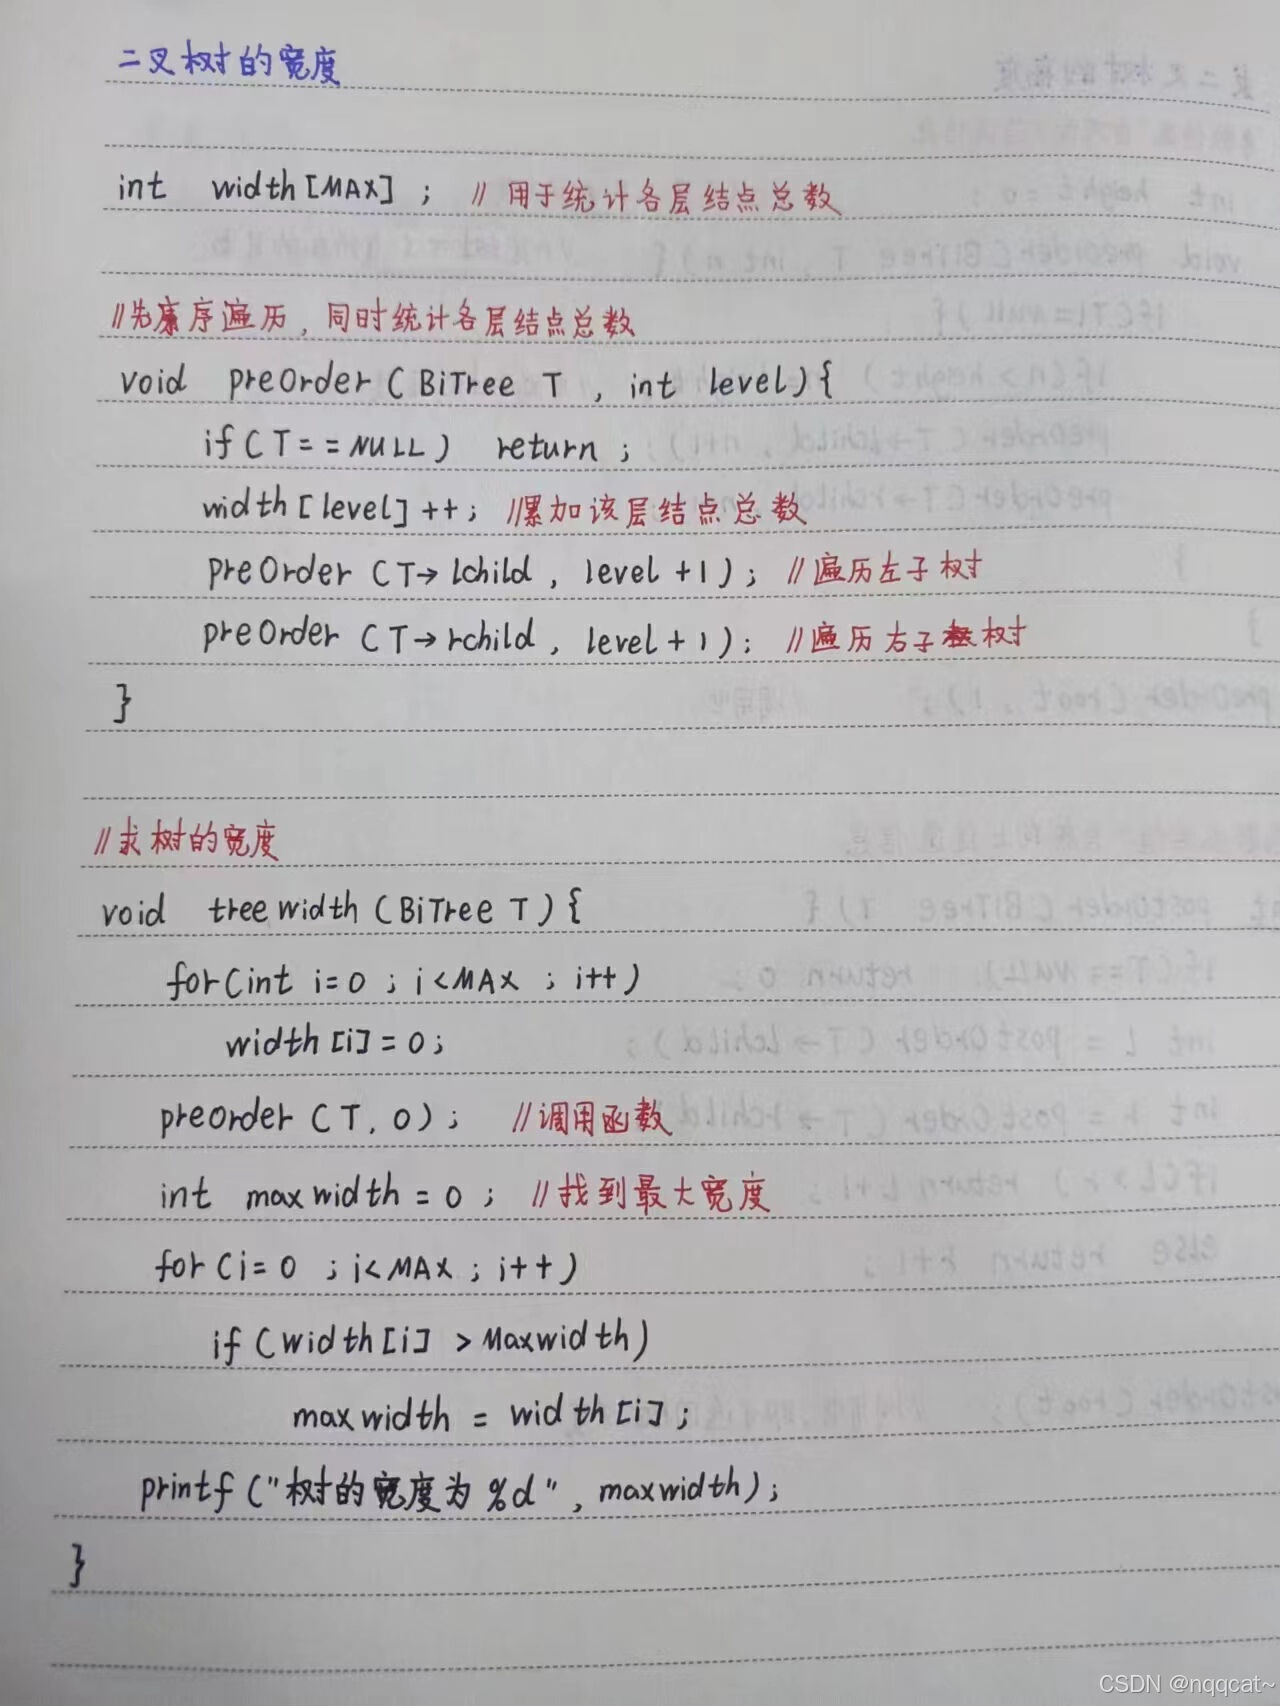 二叉树的宽度
int width[MAX]; //用于统计各层结点总数
//先序遍历,同时统计各层结点总数
void preOrder(BiTree T, int level){
if(T==NULL) return;
width[level]++; //累加该层结点总数
preOrder(T→lchild, level+1); //遍历左子树
preOrder(T→rchild, level+1); //遍历右子树
}
//求树的宽度
void treewidth(BiTree T){
for(int i=0; i<MAX; i++)
width[i]=0;
preorder(T,0); //调用函数
int maxwidth=0; //找到最大宽度
for(i=0; i<MAX; i++)
if(width[i]>Maxwidth)
maxwidth = width[i];
printf("树的宽度为%d", maxwidth);
}
CSDN @nqqcat~